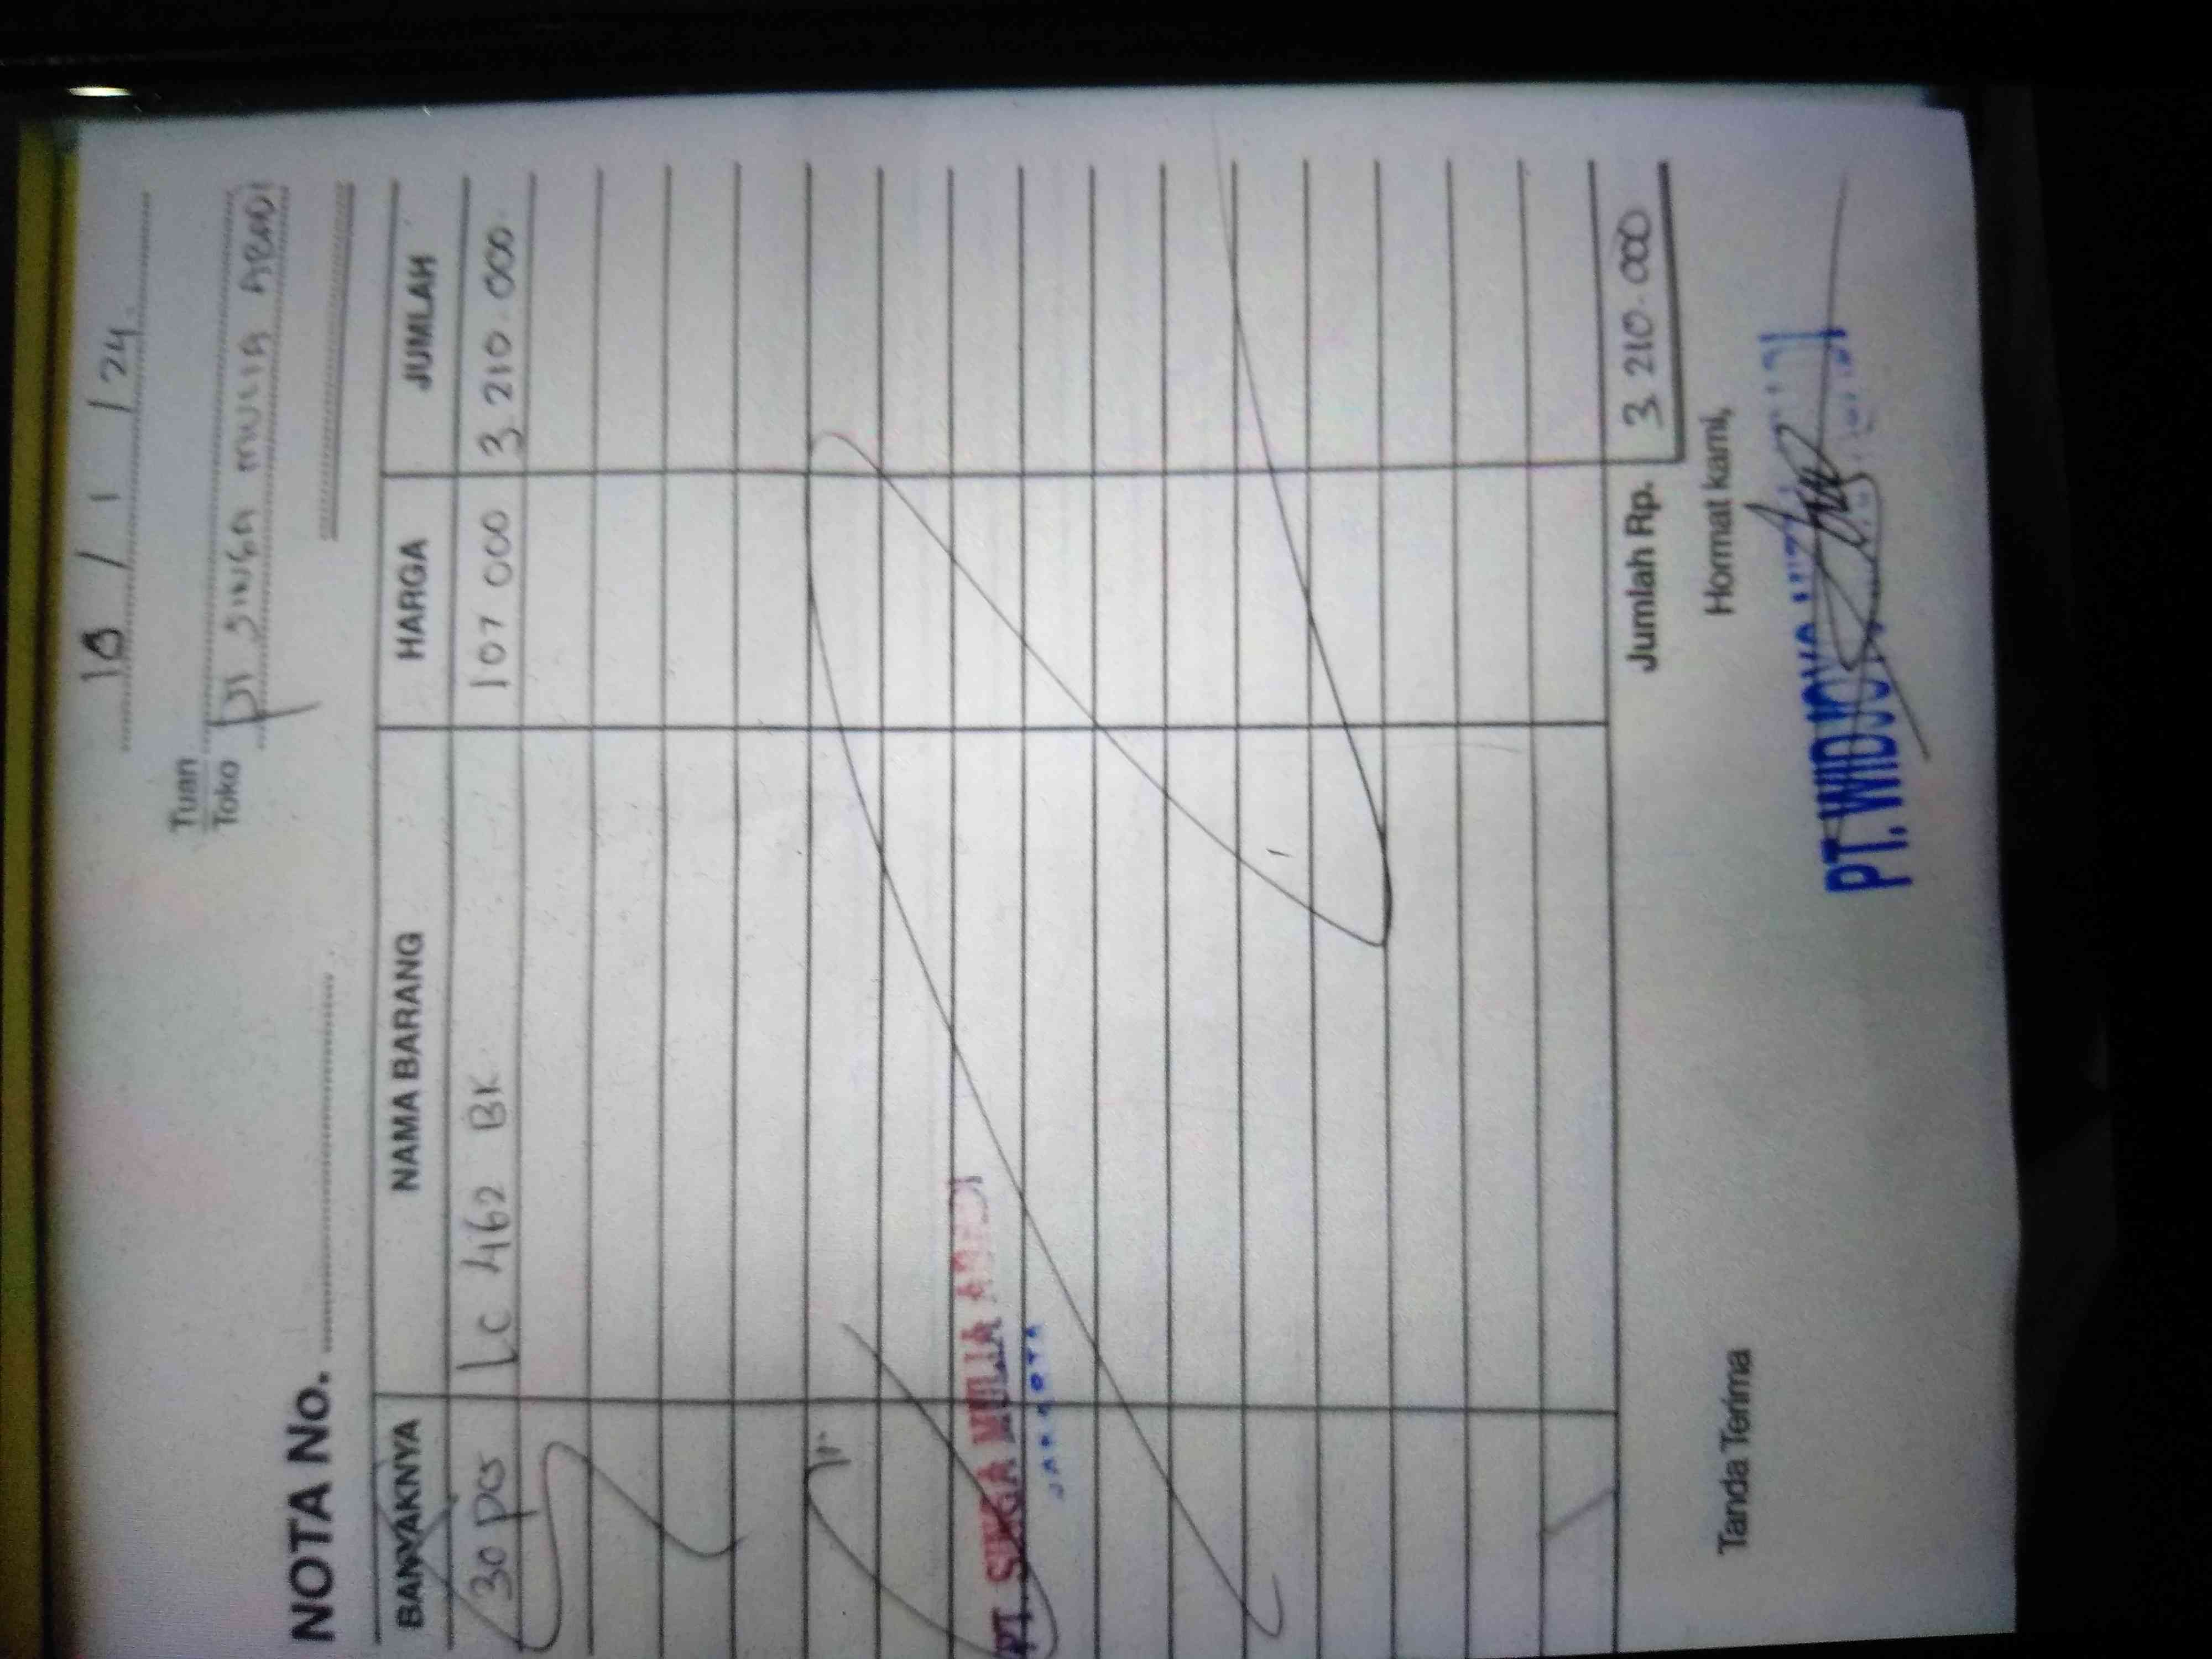 18 / 1 / 24.
Tuan
Toko PT SINGA MULIA ABADI
NOTA No.
BANYAKNYA NAMA BARANG HARGA JUMLAH
30 pcs LC 462 BK 107 000 3 210 000
PT. SINGA MULIA ABADI
Jumlah Rp. 3 210 000
Tanda Terima Hormat kami,
PT. WIDJOYA